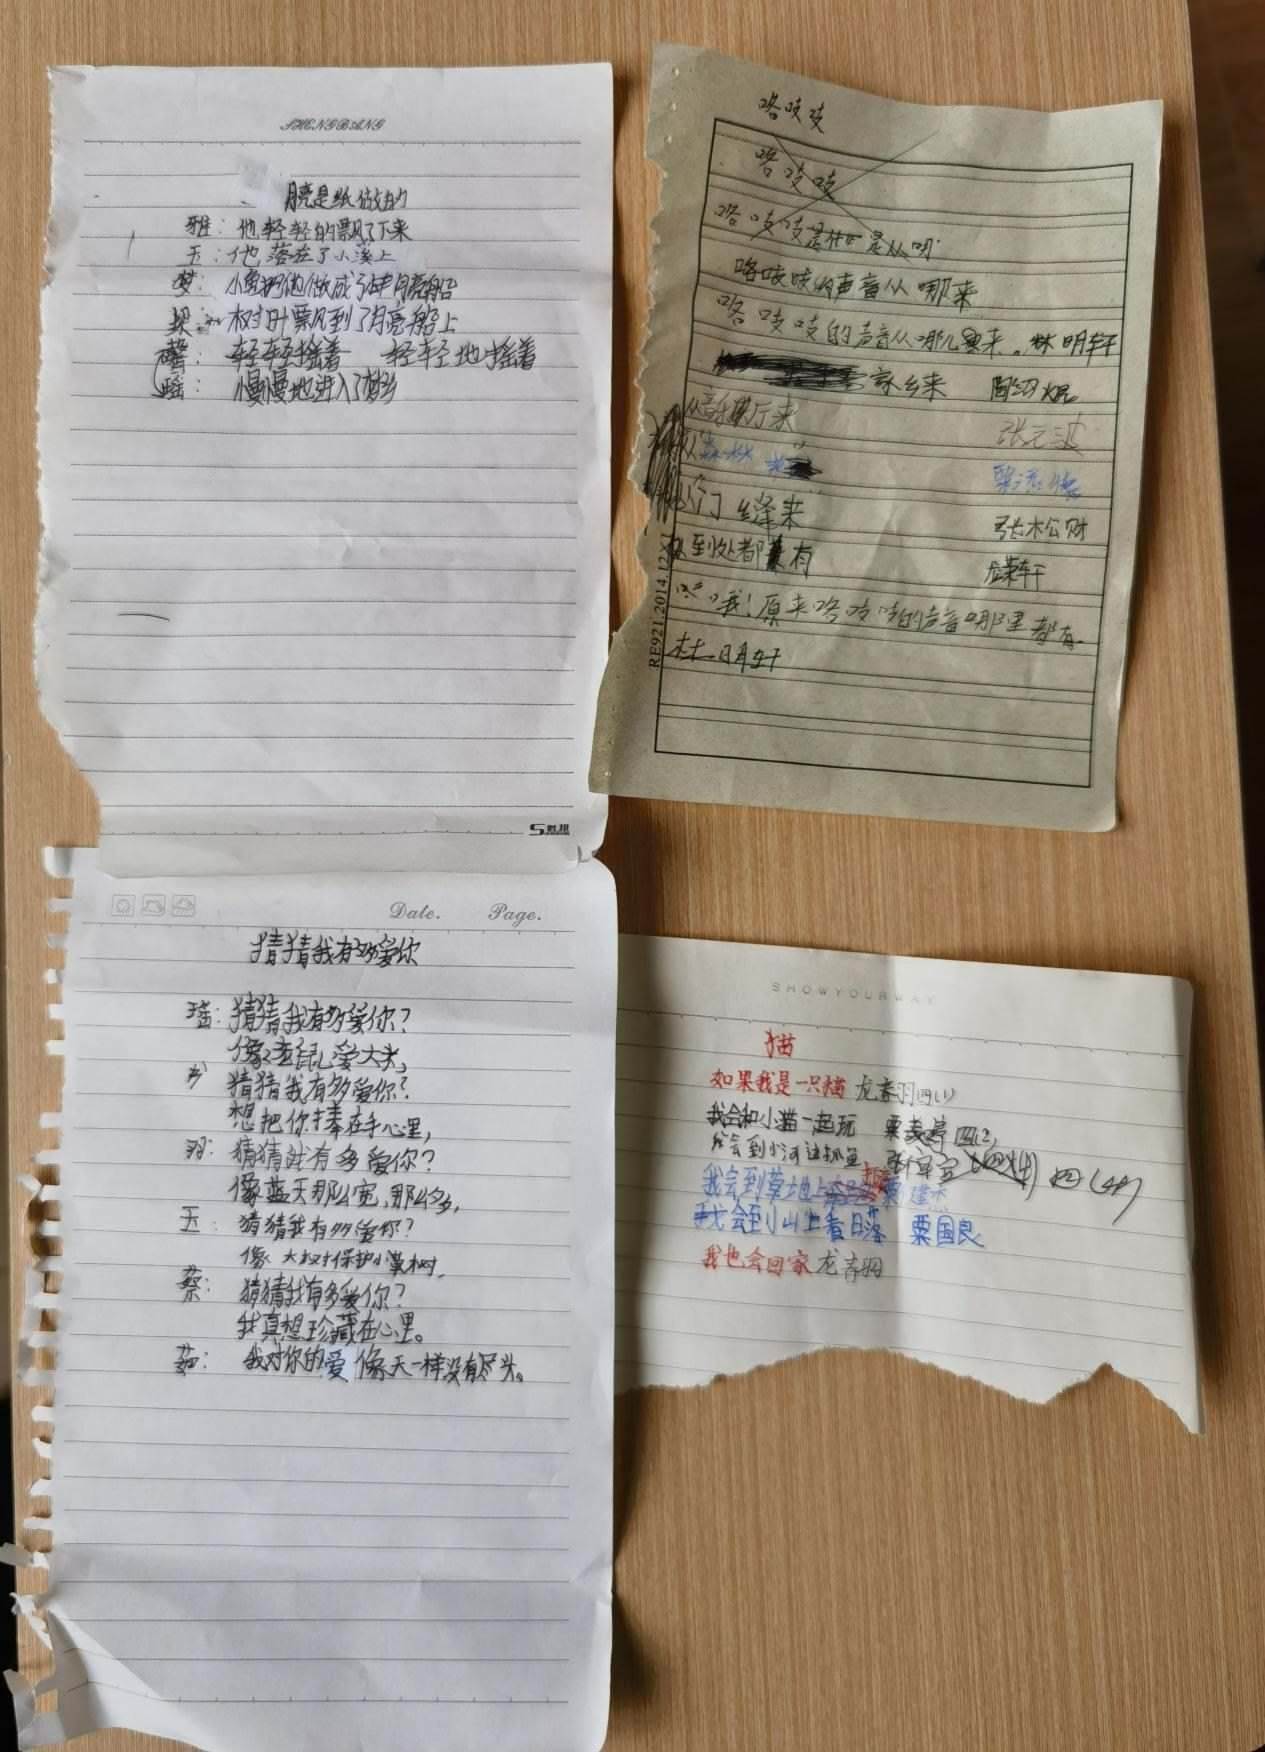 SHENGBANG
月亮是纸做的
雅：他轻轻的飘了下来
玉：他落在了小溪上
梦：小兔把他做成了月亮船
树叶飘到了月亮船上
馨：轻轻摇着 轻轻地摇着
瑶：慢慢地进入了梦乡
咯吱吱
咯吱吱
咯吱吱是什么 是从哪
咯吱吱的声音从哪来
咯吱吱的声音从哪儿来。林明轩
家乡来
从音乐厅来 张元波
从森林来
从门缝来 张松财
到处都有
哦！原来咯吱吱的声音哪里都有
林明轩
RE921.2014.12
Date. Page.
猜猜我有多爱你
瑶：猜猜我有多爱你？
像老鼠爱大米，
猜猜我有多爱你？
想把你捧在手心里，
羽：猜猜我有多爱你？
像蓝天那么宽，那么多，
玉：猜猜我有多爱你？
像大树保护小草树，
蔡：猜猜我有多爱你？
我真想珍藏在心里。
茹：我对你的爱像天一样没有尽头。
SHOWYOURWAY
猫
如果我是一只猫 龙春羽四(1)
我会和小猫一起玩 粟美婷 四(2)
我会到小河边抓鱼
我会到草地上
我会到小山上看日落 粟国良
我也会回家 龙春羽